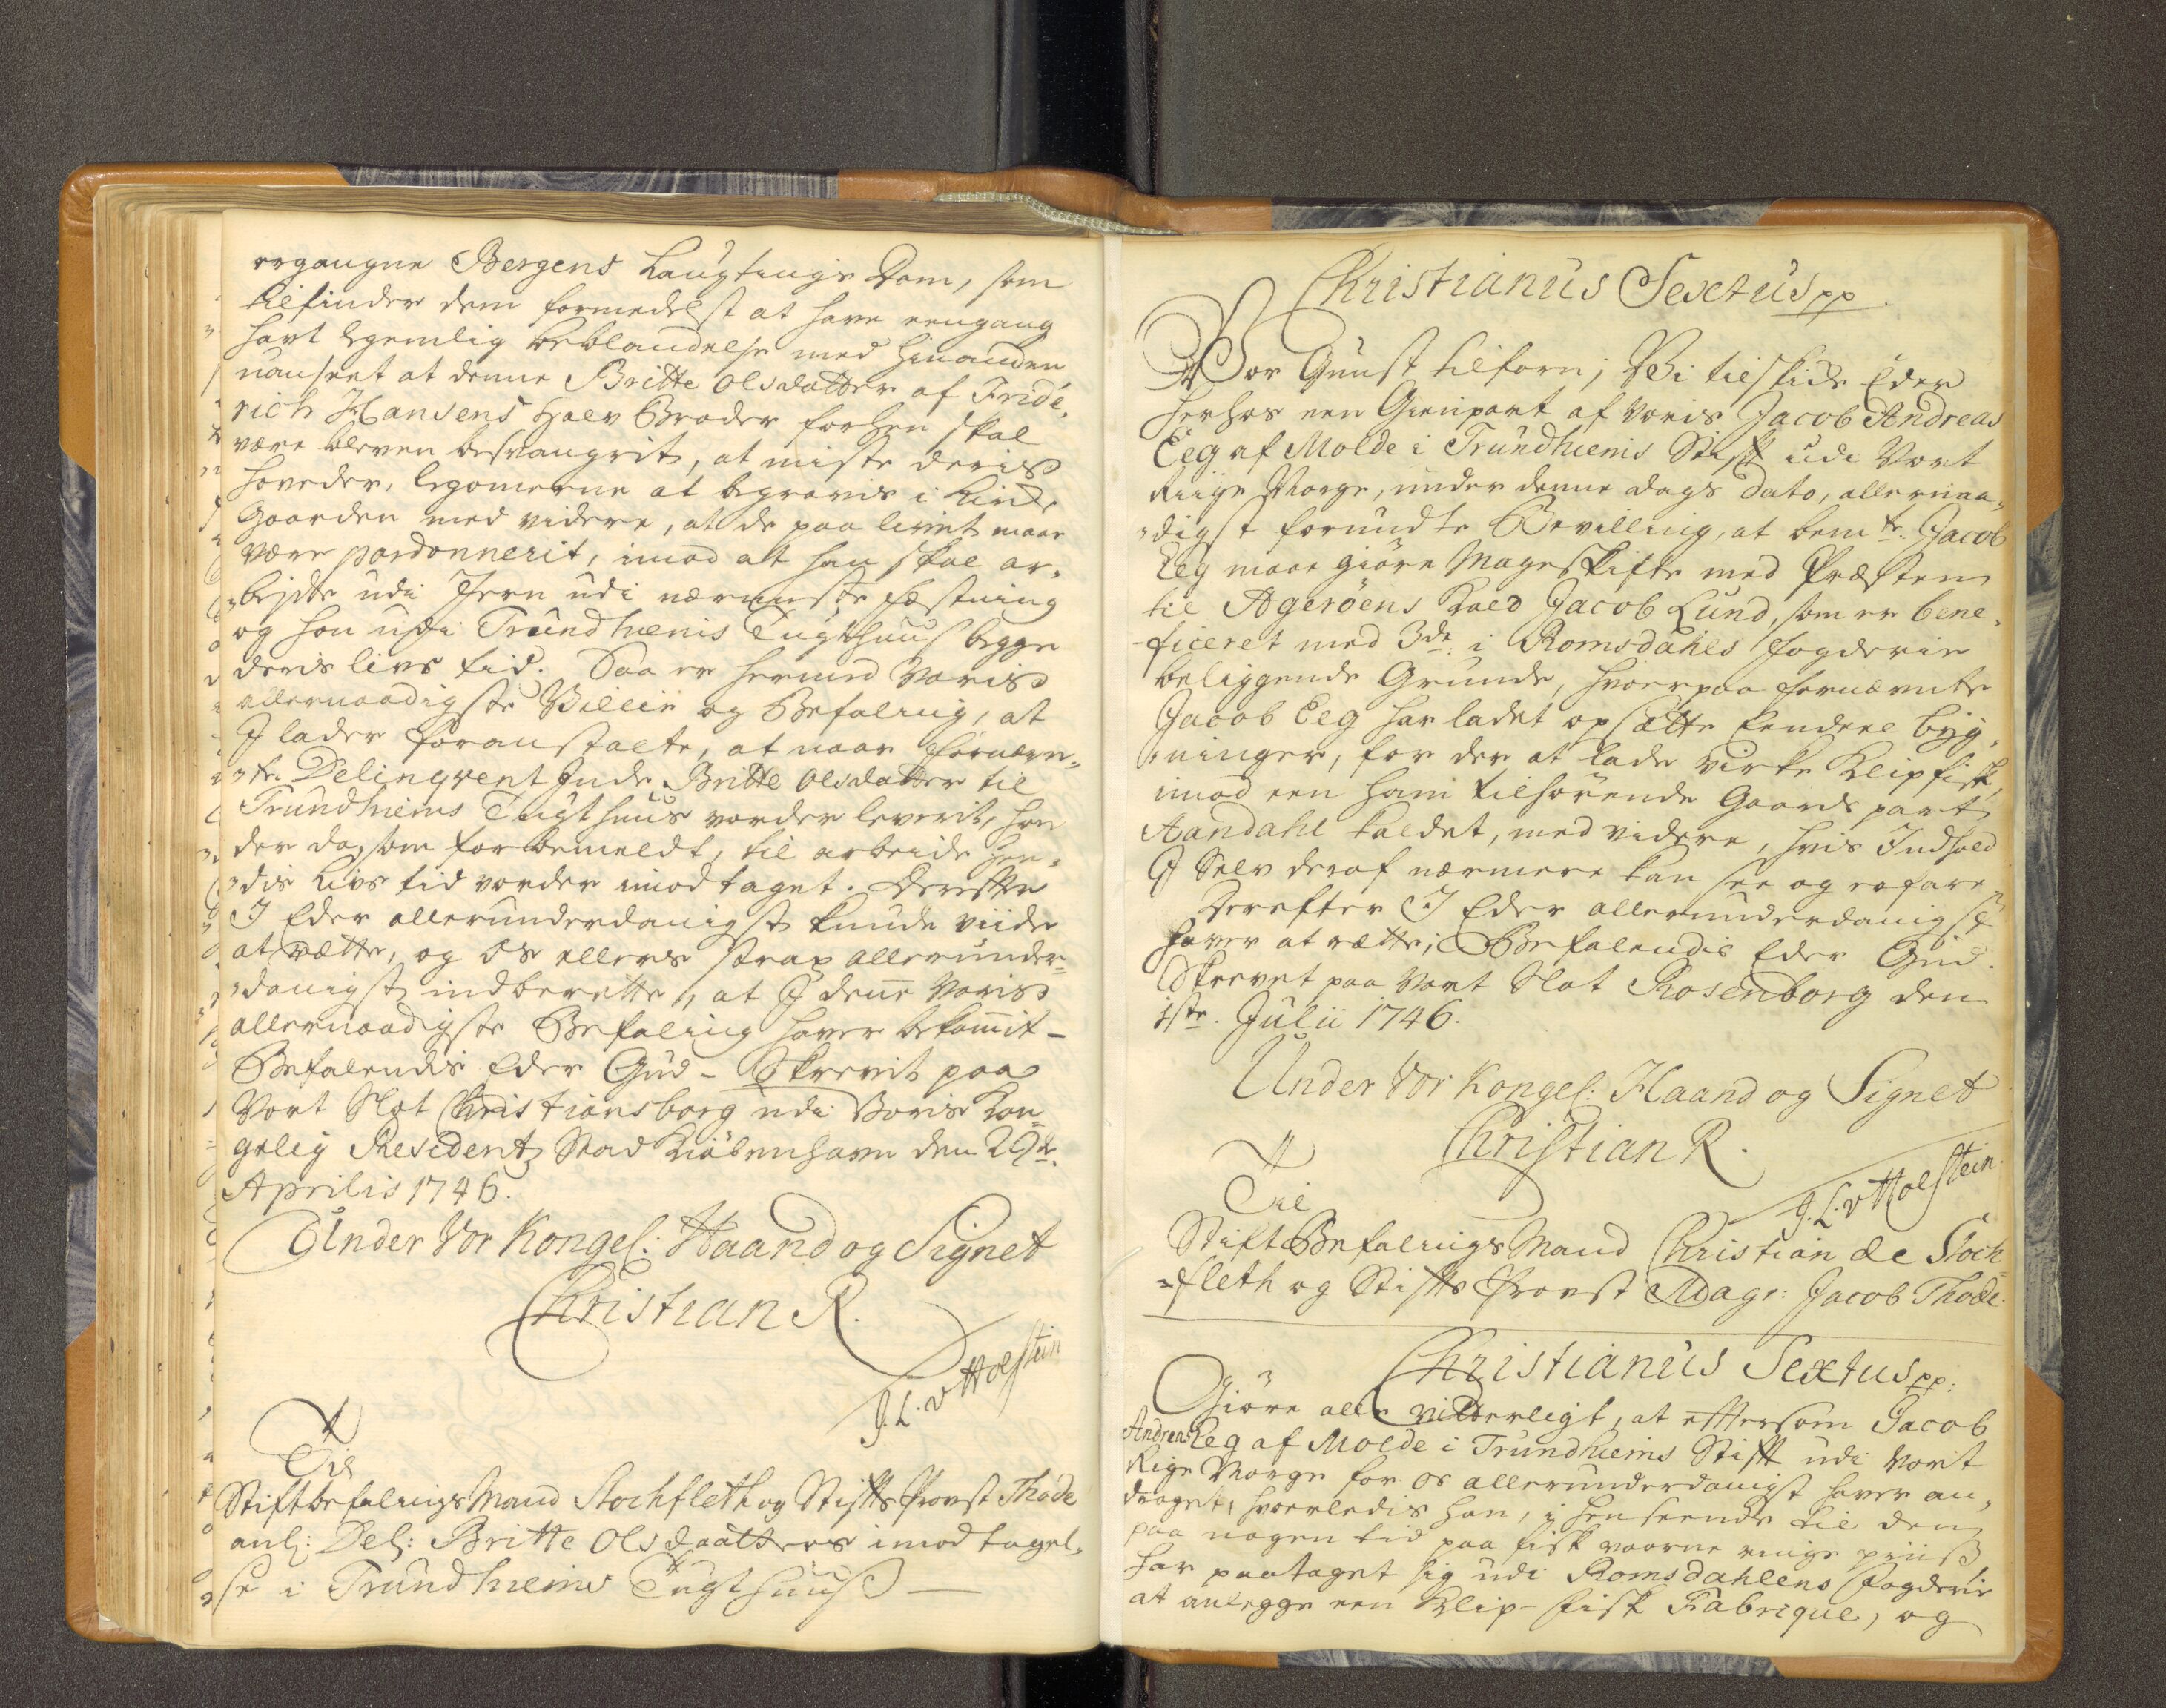 ergangne Bergens Laugtings Dom, som
tilfinder dem formedelst at have eengang
havt legemlig beblandelse med hinanden
uanseet at denne Britte Olsdatter af Fride„
rich Hansens Halv Broder forhen skal
være bleven besvangrit, at miste deris
Hoveder, legomerne at begravis i Kirke
Gaarden med videre, at de paa livet maae
være pardonnerit, imod at han skal ar„
„beide udi Jern udi nærmeste Fæstning
og hun udi Trundhiems Tugthuus begge
deris livs tid. Saa er hermed Voris
allernaadigste Villie og Befaling, at
I lader foranstalte, at naar fornævn„
„te Delinqvent Inde Britte Olsdatter til
Trundhiems Tugthuus vorder leverit, hun
der da, som forbemeldt, til arbeide hen„
„dis Livs tid vorder imodtaget. Derefter
I Eder allerunderdanigst kunde viide
at rætte, og Os ellers strax allerunder„
„danigst indberette, at I denne Voris
allernaadigste Befaling haver bekommit –
Befalendis Eder Gud – Skrevit paa
Vort Slot Christiansborg udi Voris Kon„
gelig Residentz Stad Kiöbenhavn den 29de.
Aprilis 1746.
Under Vor Kongel: Haand og Signet
Christian R.
J. L. v Holstein
Til
Stiftbefalings Mand Stochfleth og Stifts Provst Thode
anl: Del: Britte Olsdaatters imod tagel„
„se i Trundhiems Tugthuuß —
Christianus Sextus pp.
Vor Gunst tilforn; Vi tilskikke Eder
herhos een Gienpart af Voris Jacob Andreas
Eeg af Molde i Trundhiems Stift udi Vort
Riige Norge, under denne Dags Dato, allernaa„
„digst forundte Bevilling, at bemte. Jacob
Eeg maae giöre Mageskifte med Præsten
til Ageröens Kald Jacob Lund, som er bene„
„ficeret med 3de i Romsdahls Fogderie
beliggende Grunde, hvorpaa fornævnte
Jacob Eeg har ladet opsætte Eendeel byg„
„ninger, for der at lade virke Klipfisk,
imod een ham tilhörende Gaards part
Aandahl kaldet, med videre, hvis Indhold
I Selv deraf nærmere kan see og erfare
Derefter I Eder allerunderdanigst
haver at rætte; Befalendis Eder Gud.
Skrevet paa Vort Slot Rosenborg den
1ste. Julii 1746.
Under Vor Kongel: Haand og Signet
Christian R.
J. L. v Holstein.
Til
Stift Befalings Mand Christian de Stoch
„fleth og Stifts Provst Magr: Jacob Thode.
Christianus Sextus pp:
Giöre alle vitterligt, at eftersom Jacob
Andreas Eeg af Molde i Trundhiems Stift udi Vort
Rige Norge for Os allerunderdanigst haver an„
draget, hvorledis han, i henseende til den
paa nogen tid paa fisk vaarne ringe priis
har paataget sig udi Romsdahlens Fogderie
at anlegge een Klip-fisk Fabrique, og